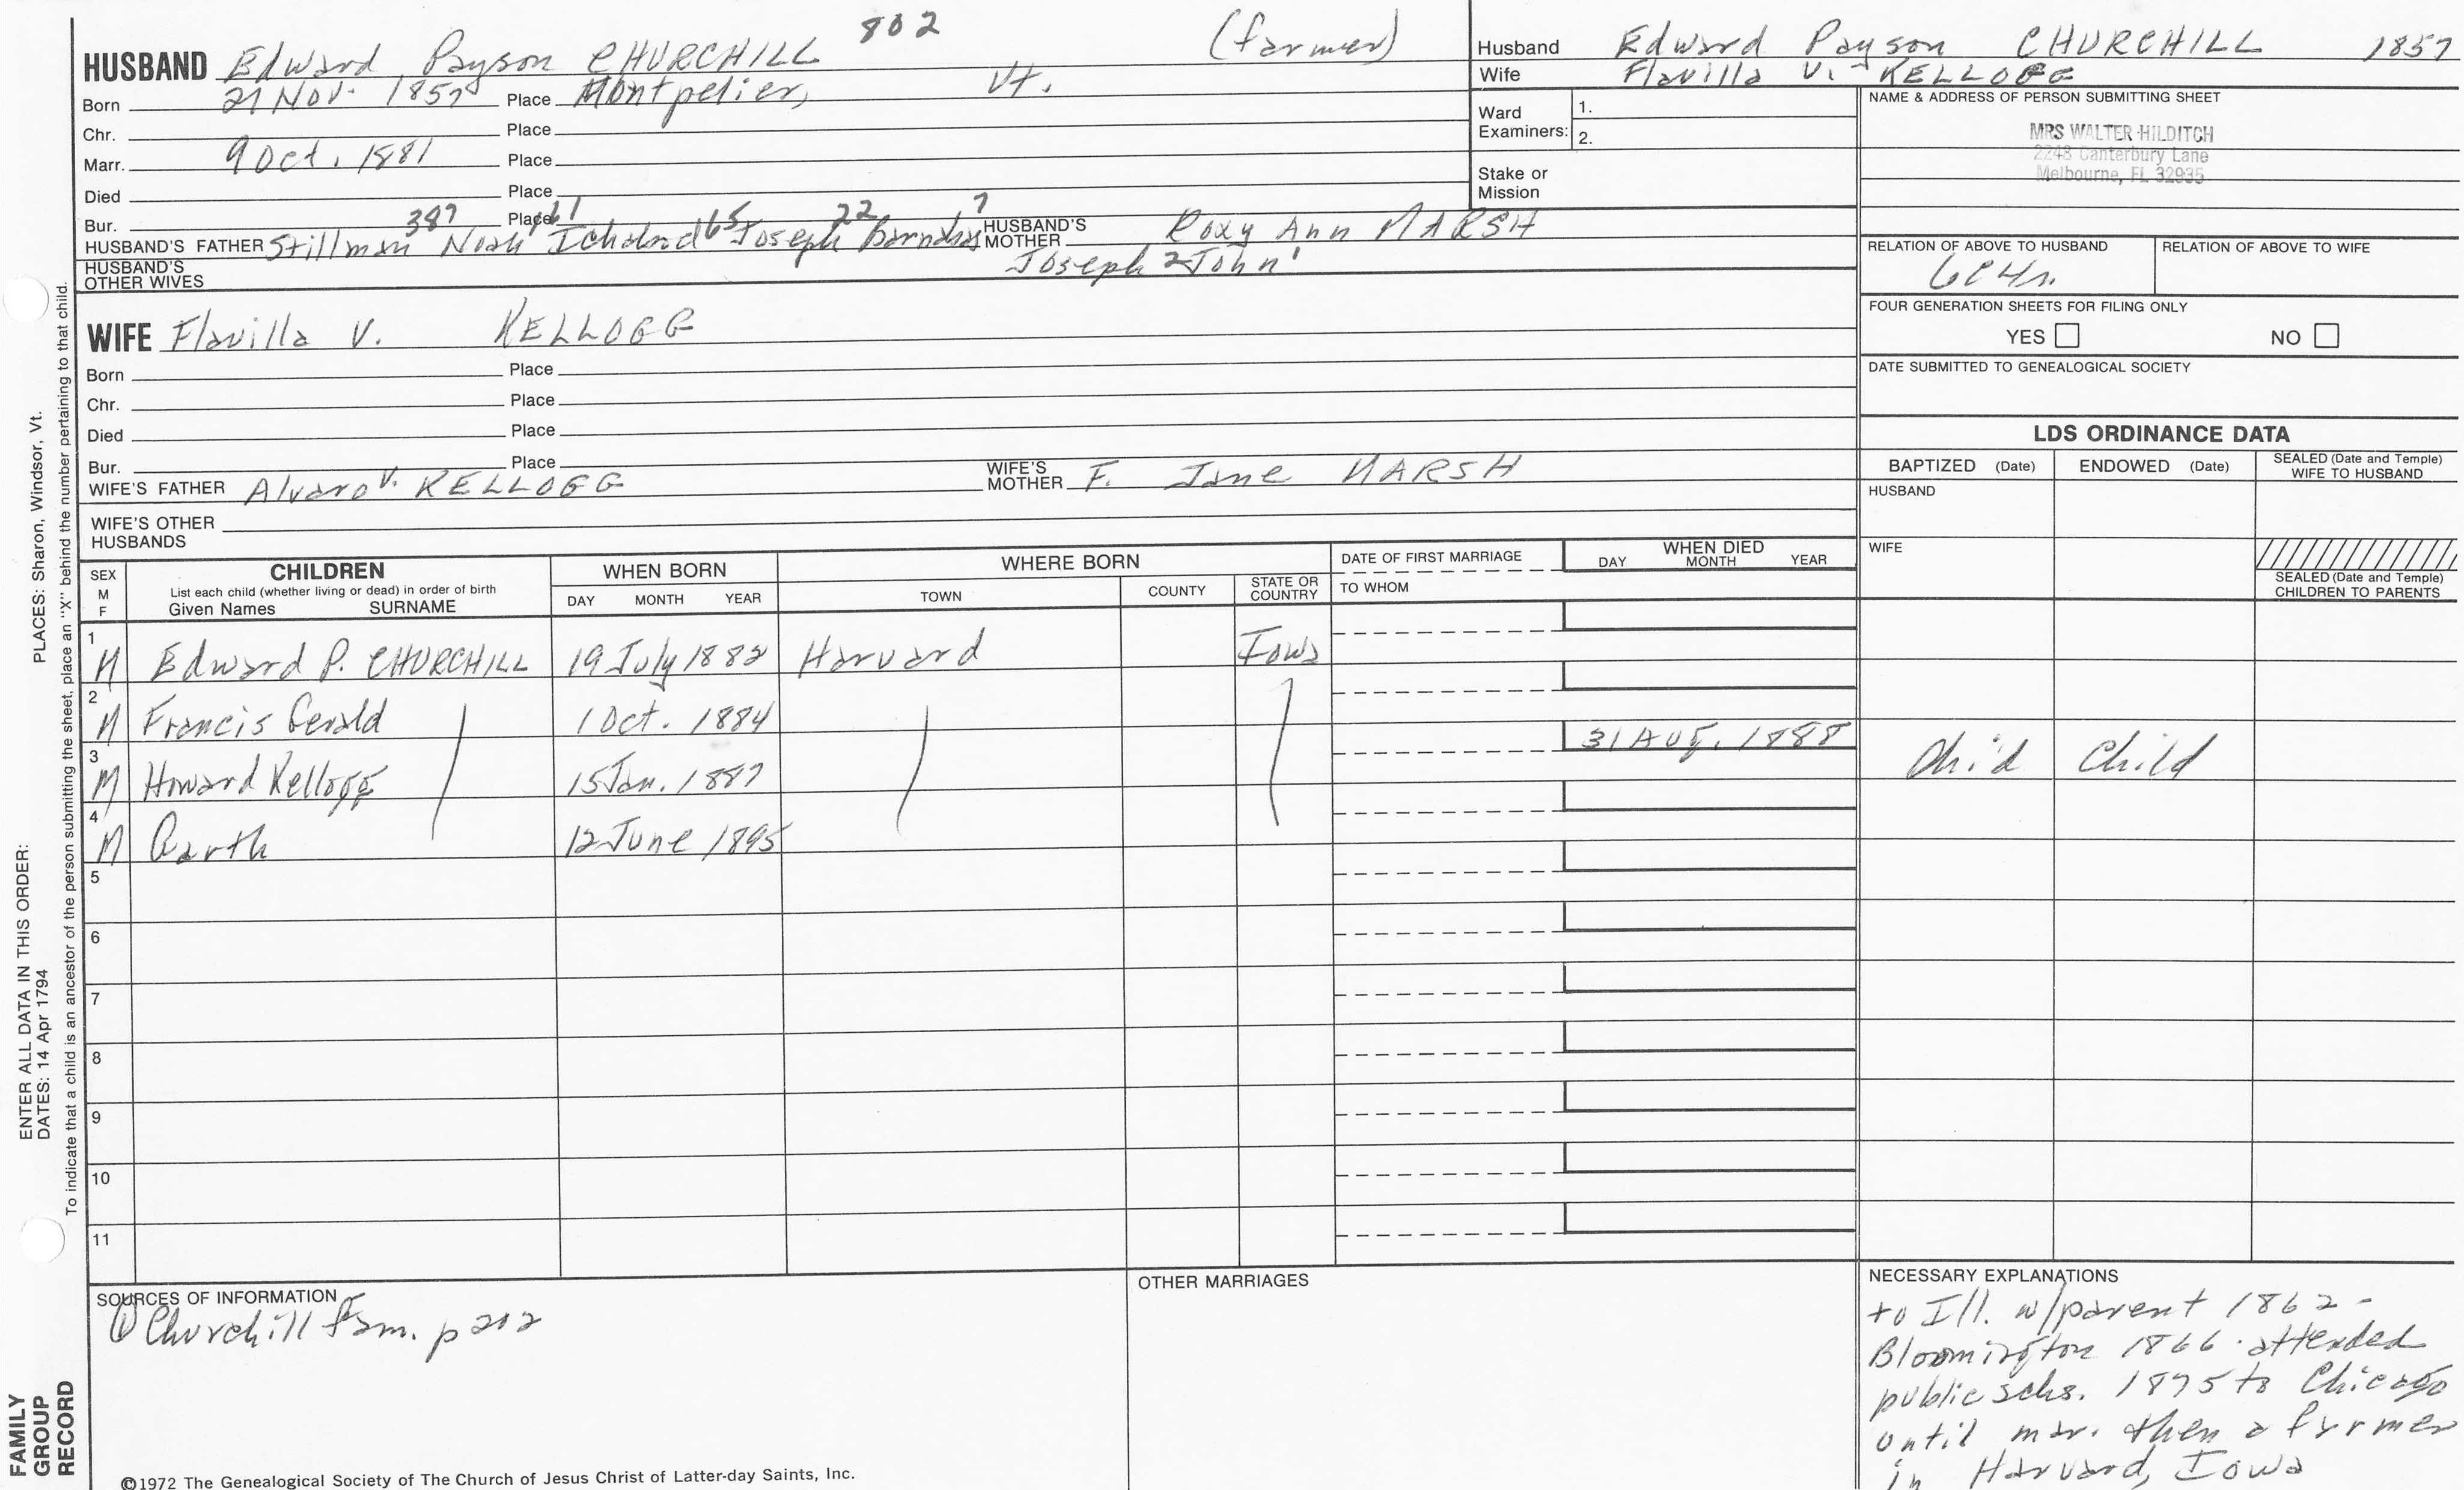 802
(farmer)
HUSBAND Edward Payson CHURCHILL
Born 21 Nov. 1857 Place Montpelier, Vt.
Chr. Place
Marr. 9 Oct. 1881 Place
Died Place
Bur. Place
387 61 65 22 7
HUSBAND'S FATHER Stillman Noah Joseph Barnabas HUSBAND'S MOTHER Roxy Ann MARSH
Joseph 2 John 1
HUSBAND'S OTHER WIVES
Husband Edward Payson CHURCHILL 1857
Wife Flavilla V. KELLOGG
Ward Examiners: 1.
2.
Stake or Mission
NAME & ADDRESS OF PERSON SUBMITTING SHEET
MRS WALTER HILDITCH
2248 Canterbury Lane
Melbourne, FL 32935
RELATION OF ABOVE TO HUSBAND RELATION OF ABOVE TO WIFE
FOUR GENERATION SHEETS FOR FILING ONLY
YES NO
DATE SUBMITTED TO GENEALOGICAL SOCIETY
WIFE Flavilla V. KELLOGG
Born Place
Chr. Place
Died Place
Bur. Place
WIFE'S FATHER Alvaro V. KELLOGG WIFE'S MOTHER F. Jane MARSH
WIFE'S OTHER HUSBANDS
LDS ORDINANCE DATA
BAPTIZED (Date) ENDOWED (Date) SEALED (Date and Temple) WIFE TO HUSBAND
HUSBAND
WIFE
SEALED (Date and Temple) CHILDREN TO PARENTS
SEX M F
CHILDREN
List each child (whether living or dead) in order of birth
Given Names SURNAME
WHEN BORN
DAY MONTH YEAR
WHERE BORN
TOWN COUNTY STATE OR COUNTRY
DATE OF FIRST MARRIAGE
TO WHOM
WHEN DIED
DAY MONTH YEAR
1 M Edward P. CHURCHILL 19 July 1882 Harvard Iowa
2 M Francis Gerald 1 Oct. 1884
3 M Howard Kellogg 15 Jan. 1887 31 Aug. 1888 Child Child
4 M Garth 12 June 1895
5
6
7
8
9
10
11
SOURCES OF INFORMATION
① Churchill Fam. p 202
OTHER MARRIAGES
NECESSARY EXPLANATIONS
to Ill. w/parent 1862 -
Bloomington 1866 . attended
public schs. 1875 to Chicago
until mar. then a farmer
in Harvard, Iowa
©1972 The Genealogical Society of The Church of Jesus Christ of Latter-day Saints, Inc.
FAMILY
GROUP
RECORD
ENTER ALL DATA IN THIS ORDER:
DATES: 14 Apr 1794
PLACES: Sharon, Windsor, Vt.
To indicate that a child is an ancestor of the person submitting the sheet, place an "X" behind the number pertaining to that child.